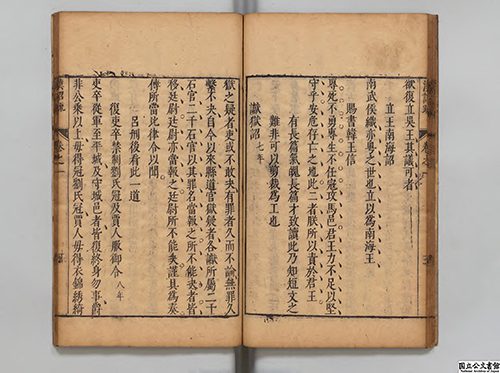 欲復立吳王其議可者
立王南海詔
南武侯織亦粤之世也立以爲南海王
賜書韓王信
專死不勇專生不任冦攻馬邑君王力不足以堅
守乎安危存亡之地此二者朕所以責於君王
有長篇氣魄長篇才致讀此乃知短文之
難非可以剪裁爲工也
讞獄詔 七年
獄之疑者吏或不敢决有罪者久而不論無罪久
繫不决自今以來縣道官獄疑者各讞所屬二千
石官二千石官以其罪名當報之所不能决者皆
移廷尉廷尉亦當報之廷尉所不能决謹具爲奏
傅所當比律令以聞
呂刑後看此一道
復吏卒禁劉氏冠及賈人服御令 八年
吏卒從軍至平城及守城邑者皆復終身勿事爵
非公乘以上毋得冠劉氏冠賈人毋得衣錦綉綺
国立公文書館